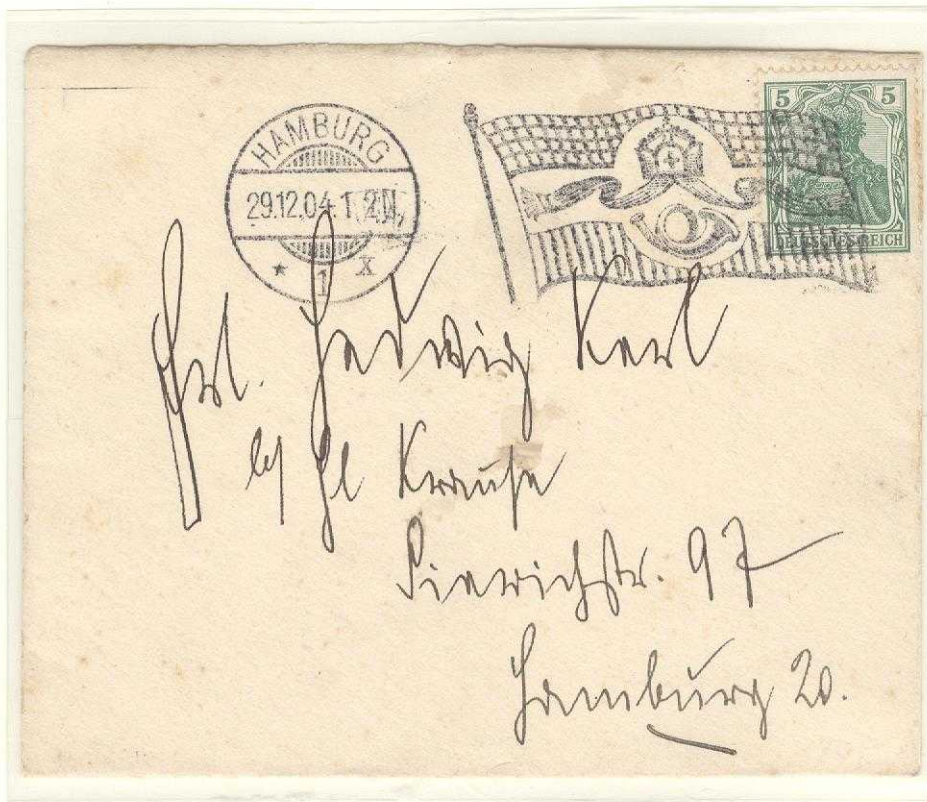 HAMBURG
29.12.04. 1-2N.
* 1 X
5 5
DEUTSCHES REICH
Frl. Hedwig Karl
Krause
Sierichstr. 97
Hamburg 20.